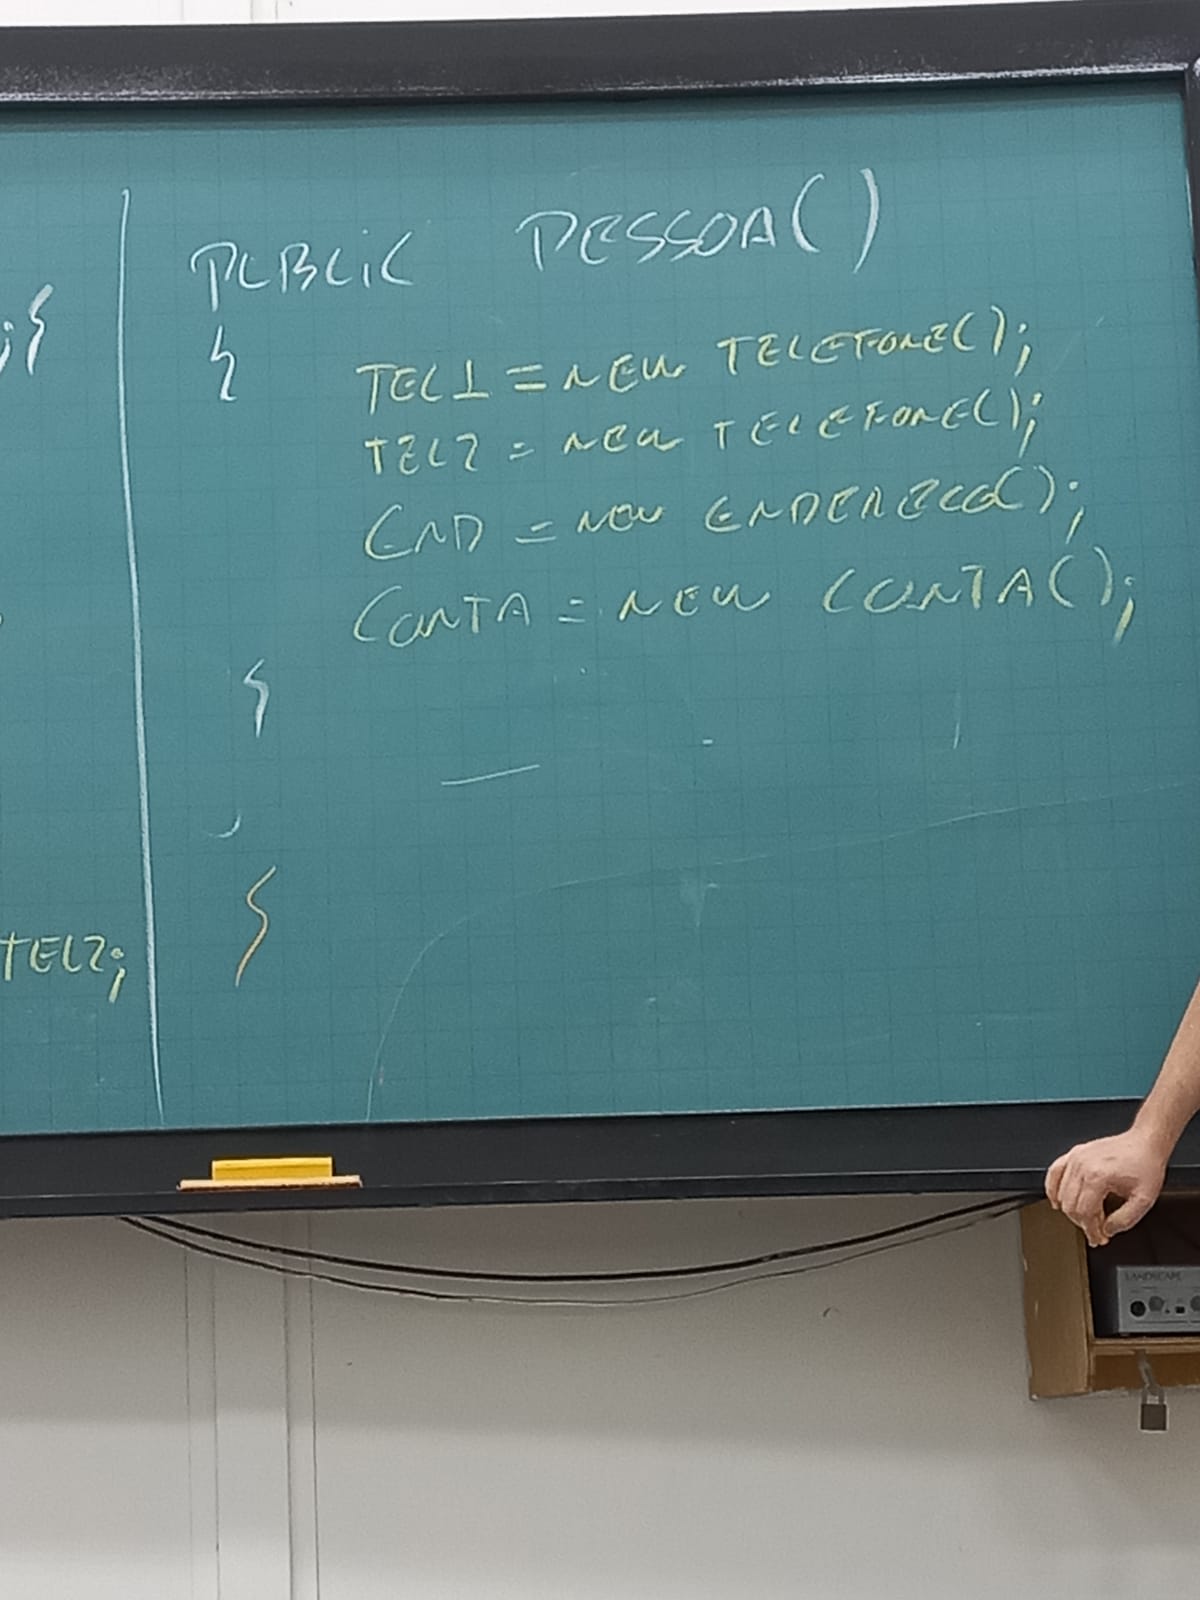 PUBLIC PESSOA()
{
TEL1 = NEW TELEFONE();
TEL2 = NEW TELEFONE();
END = NEW ENDERECO();
CONTA = NEW CONTA();
}
}
TEL2;
LANDSCAPE